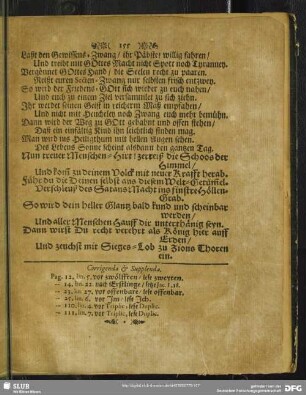 151
Laßt den Gewissens-Zwang/ ihr Päbste/ willig fahren/
Und treibt mit GOttes Macht nicht Spott noch Tyranney.
Vergönnet GOttes Hand/ die Seelen recht zu paaren.
Reißt euren Seelen-Zwang nur selbsten frisch entzwey.
So wird der Friedens-GOtt sich wieder zu euch nahen/
Und euch zu einem Ziel versammlet zu sich ziehn.
Ihr werdet seinen Geist in reichem Maß empfahen/
Und nicht mit Heucheley noch Zwang euch mehr bemühn.
Dann wird der Weg zu GOtt gebähnt und offen stehen/
Daß ein einfältig Kind ihn leichtlich finden mag.
Man wird ins Heiligthum mit hellen Augen sehen.
Des Lebens Sonne scheint alsdann den gantzen Tag.
Nun treuer Menschen-Hirt! zerreiß die Schoos der
Himmel/
Und komm zu deinem Volck mit neuer Krafft herab.
Führe du die Deinen selbst aus diesem Welt-Getümmel.
Verschleuß des Satans Macht ins finstre Höllen-
Grab.
So wird dein heller Glantz bald kund und scheinbar
werden/
Und aller Menschen Hauff dir unterthänig seyn.
Dann wirst Du recht verehrt als König hier auff
Erden/
Und zeuchst mit Sieges-Lob zu Zions Thoren
ein.
Corrigenda & Supplenda.
Pag. 12. lin. 5. vor zwölfften/ lese zweyten.
- 14. lin. 22. nach Erstlinge/
- 23. lin. 27. vor offenbare/ lese offenbar.
- 25. lin. 6. vor Jm/ lese Jch.
- 110. lin. 4. vor Triplic, lese Duplic.
- 111. lin. 7. vor Triplic, lese Duplic.
SLUB
Wir führen Wissen.